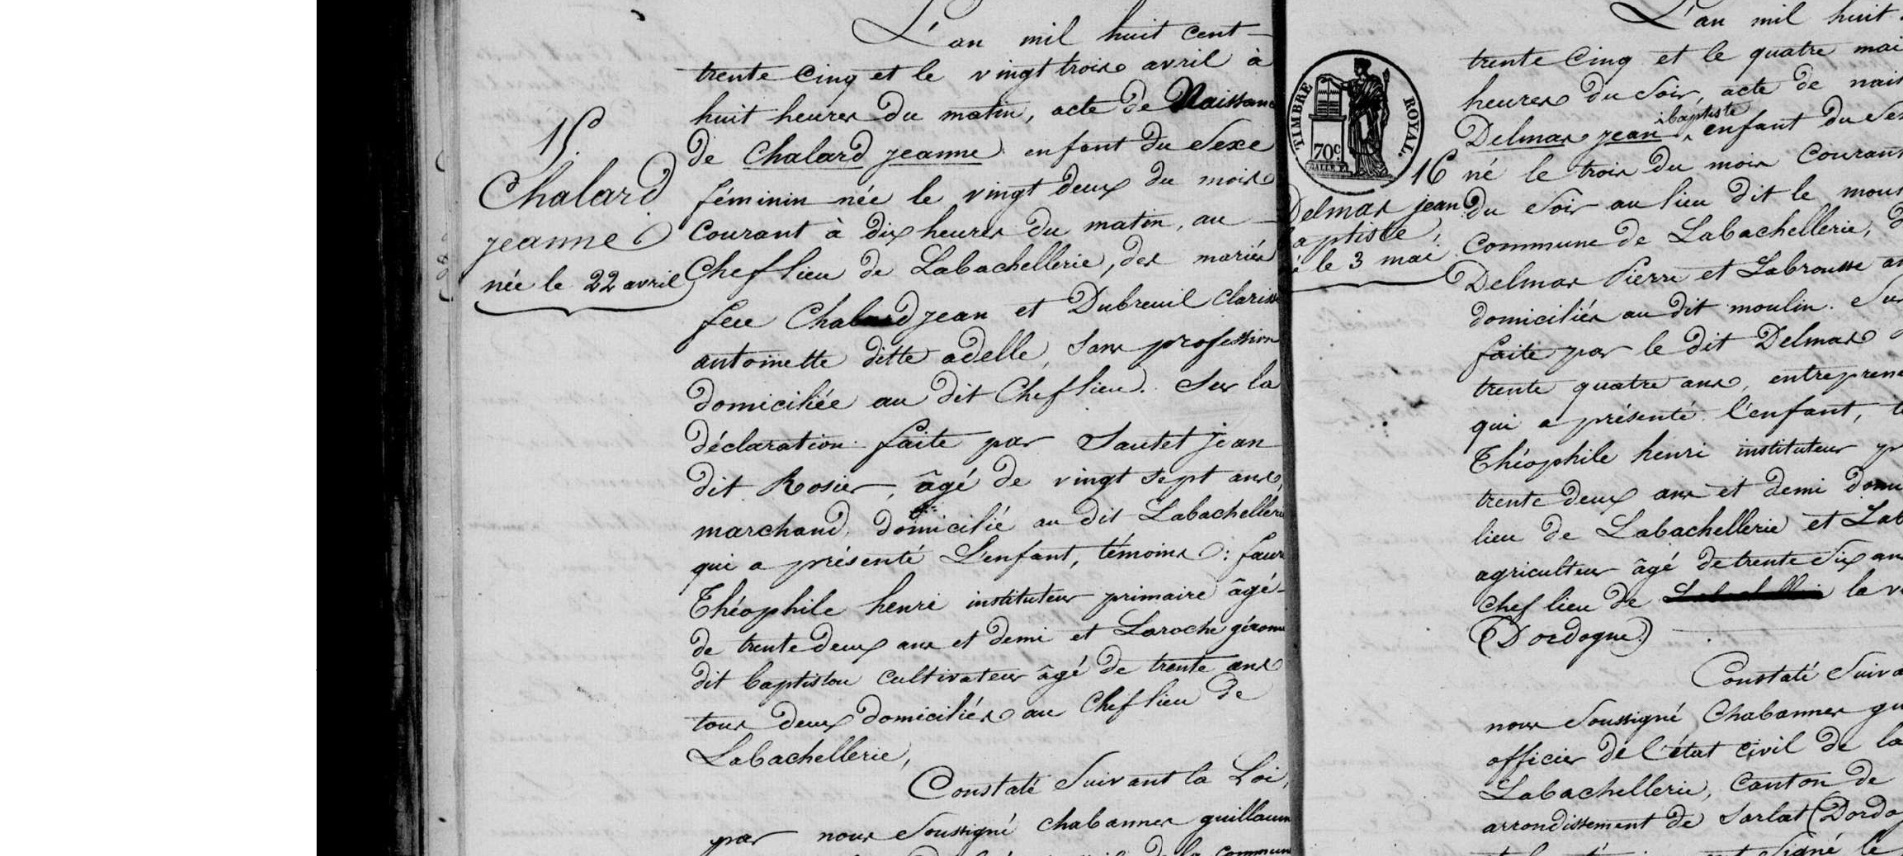 15.
Chalard
jeanne
née le 22 avril
L'an mil huit cent
trente cinq et le vingt trois avril à
huit heures du matin, acte de Naissance
de Chalard jeanne enfant du Sexe
féminin née le vingt deux du mois
courant à dix heures du matin, au
Chef lieu de Labachellerie, des mariés
feu Chalard jean et Dubreuil Clarisse
antoinette ditte adelle, sans profession
domiciliée au dit Chef lieu. Sur la
déclaration faite par Sautet jean
dit Rosier, âgé de vingt sept ans,
marchand, domicilié au dit Labachellerie
qui a présenté L'enfant, témoins : faure
Théophile henri instituteur primaire âgé
de trente deux ans et demi et Laroche gérome
dit baptistou cultivateur âgé de trente ans
tous deux domiciliés au Chef lieu de
Labachellerie,
Constaté Suivant la Loi,
par nous Soussigné chabannes guillaume
de la commune
TIMBRE ROYAL.
70c
16
Delmas jean
baptiste,
né le 3 mai
L'an mil huit
trente cinq et le quatre mai
heures du Soir, acte de nais
Delmas jean baptiste, enfant du Sex
né le trois du mois Courant
du Soir au lieu dit le moul
Commune de Labachellerie, d
Delmas Pierre et Labrousse an
domiciliés au dit moulin. Sur
faite par le dit Delmas
trente quatre ans, entrepren
qui a présenté l'enfant, t
Théophile henri instituteur pr
trente deux ans et demi domi
lieu de Labachellerie et Lab
agriculteur âgé de trente Six an
chef lieu de la v
(Dordogne)
Constaté Suiva
nous Soussigné Chabannes gu
officier de l'état civil de la
Labachellerie, Canton de
arrondissement de Sarlat (Dordog
signé le